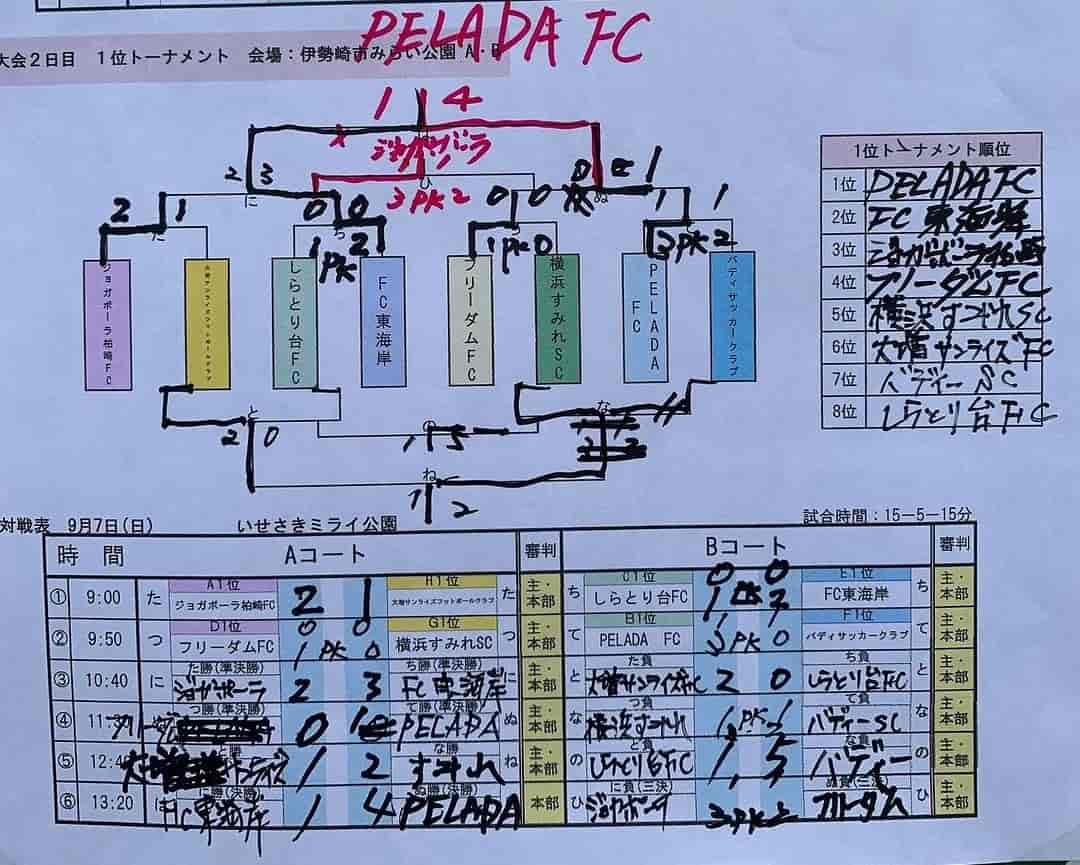 PELADA FC
大会2日目 1位トーナメント 会場：伊勢崎市みらい公園 A・B
1 4
ジョガボーラ
3 PK 2
2 3
0 1
2 1
0 0
1 PK 2
0 0
1 PK 0
1 1
3 PK 2
に
ひ
ぬ
た
ち
ジョガボーラ柏崎FC
大増サンライズフットボールクラブ
しらとり台FC
FC東海岸
フリーダムFC
横浜すみれSC
PELADA FC
バディサッカークラブ
と
な
2 0
の
1 5
ね
1 2
1位トーナメント順位
1位 PELADA FC
2位 FC東海岸
3位 ジョガボーラ柏崎
4位 フリーダムFC
5位 横浜すみれSC
6位 大増サンライズFC
7位 バディーSC
8位 しらとり台FC
対戦表 9月7日(日) いせさきミライ公園 試合時間：15-5-15分
時間 Aコート 審判 Bコート 審判
A1位 H1位 C1位 E1位
① 9:00 た ジョガボーラ柏崎FC 2 1 大増サンライズフットボールクラブ た 主・本部 ち しらとり台FC 0 0 1 PK 2 FC東海岸 ち 主・本部
D1位 G1位 B1位 F1位
② 9:50 つ フリーダムFC 0 0 1 PK 0 横浜すみれSC つ 主・本部 て PELADA FC 1 1 3 PK バディサッカークラブ て 主・本部
た勝(準決勝) ち勝(準決勝) た負 ち負
③ 10:40 に ジョガボーラ 2 3 FC東海岸 に 主・本部 と 大増サンライズFC 2 0 しらとり台FC と 主・本部
つ勝(準決勝) て勝(準決勝) つ負 て負
④ フリーダム 0 1 PELADA ぬ 主・本部 な 横浜すみれ 1 PK 1 バディーSC な 主・本部
と勝 な勝 と負 な負
⑤ サンライズ 1 2 すみれ ね 主・本部 の しらとり台FC 1 5 バディー の 主・本部
に勝(決勝) ぬ勝(決勝) に負(三決) ぬ負(三決)
⑥ 13:20 FC東海岸 1 4 PELADA 本部 ひ ジョガボーラ 3 PK 2 フリーダム ひ 主・本部